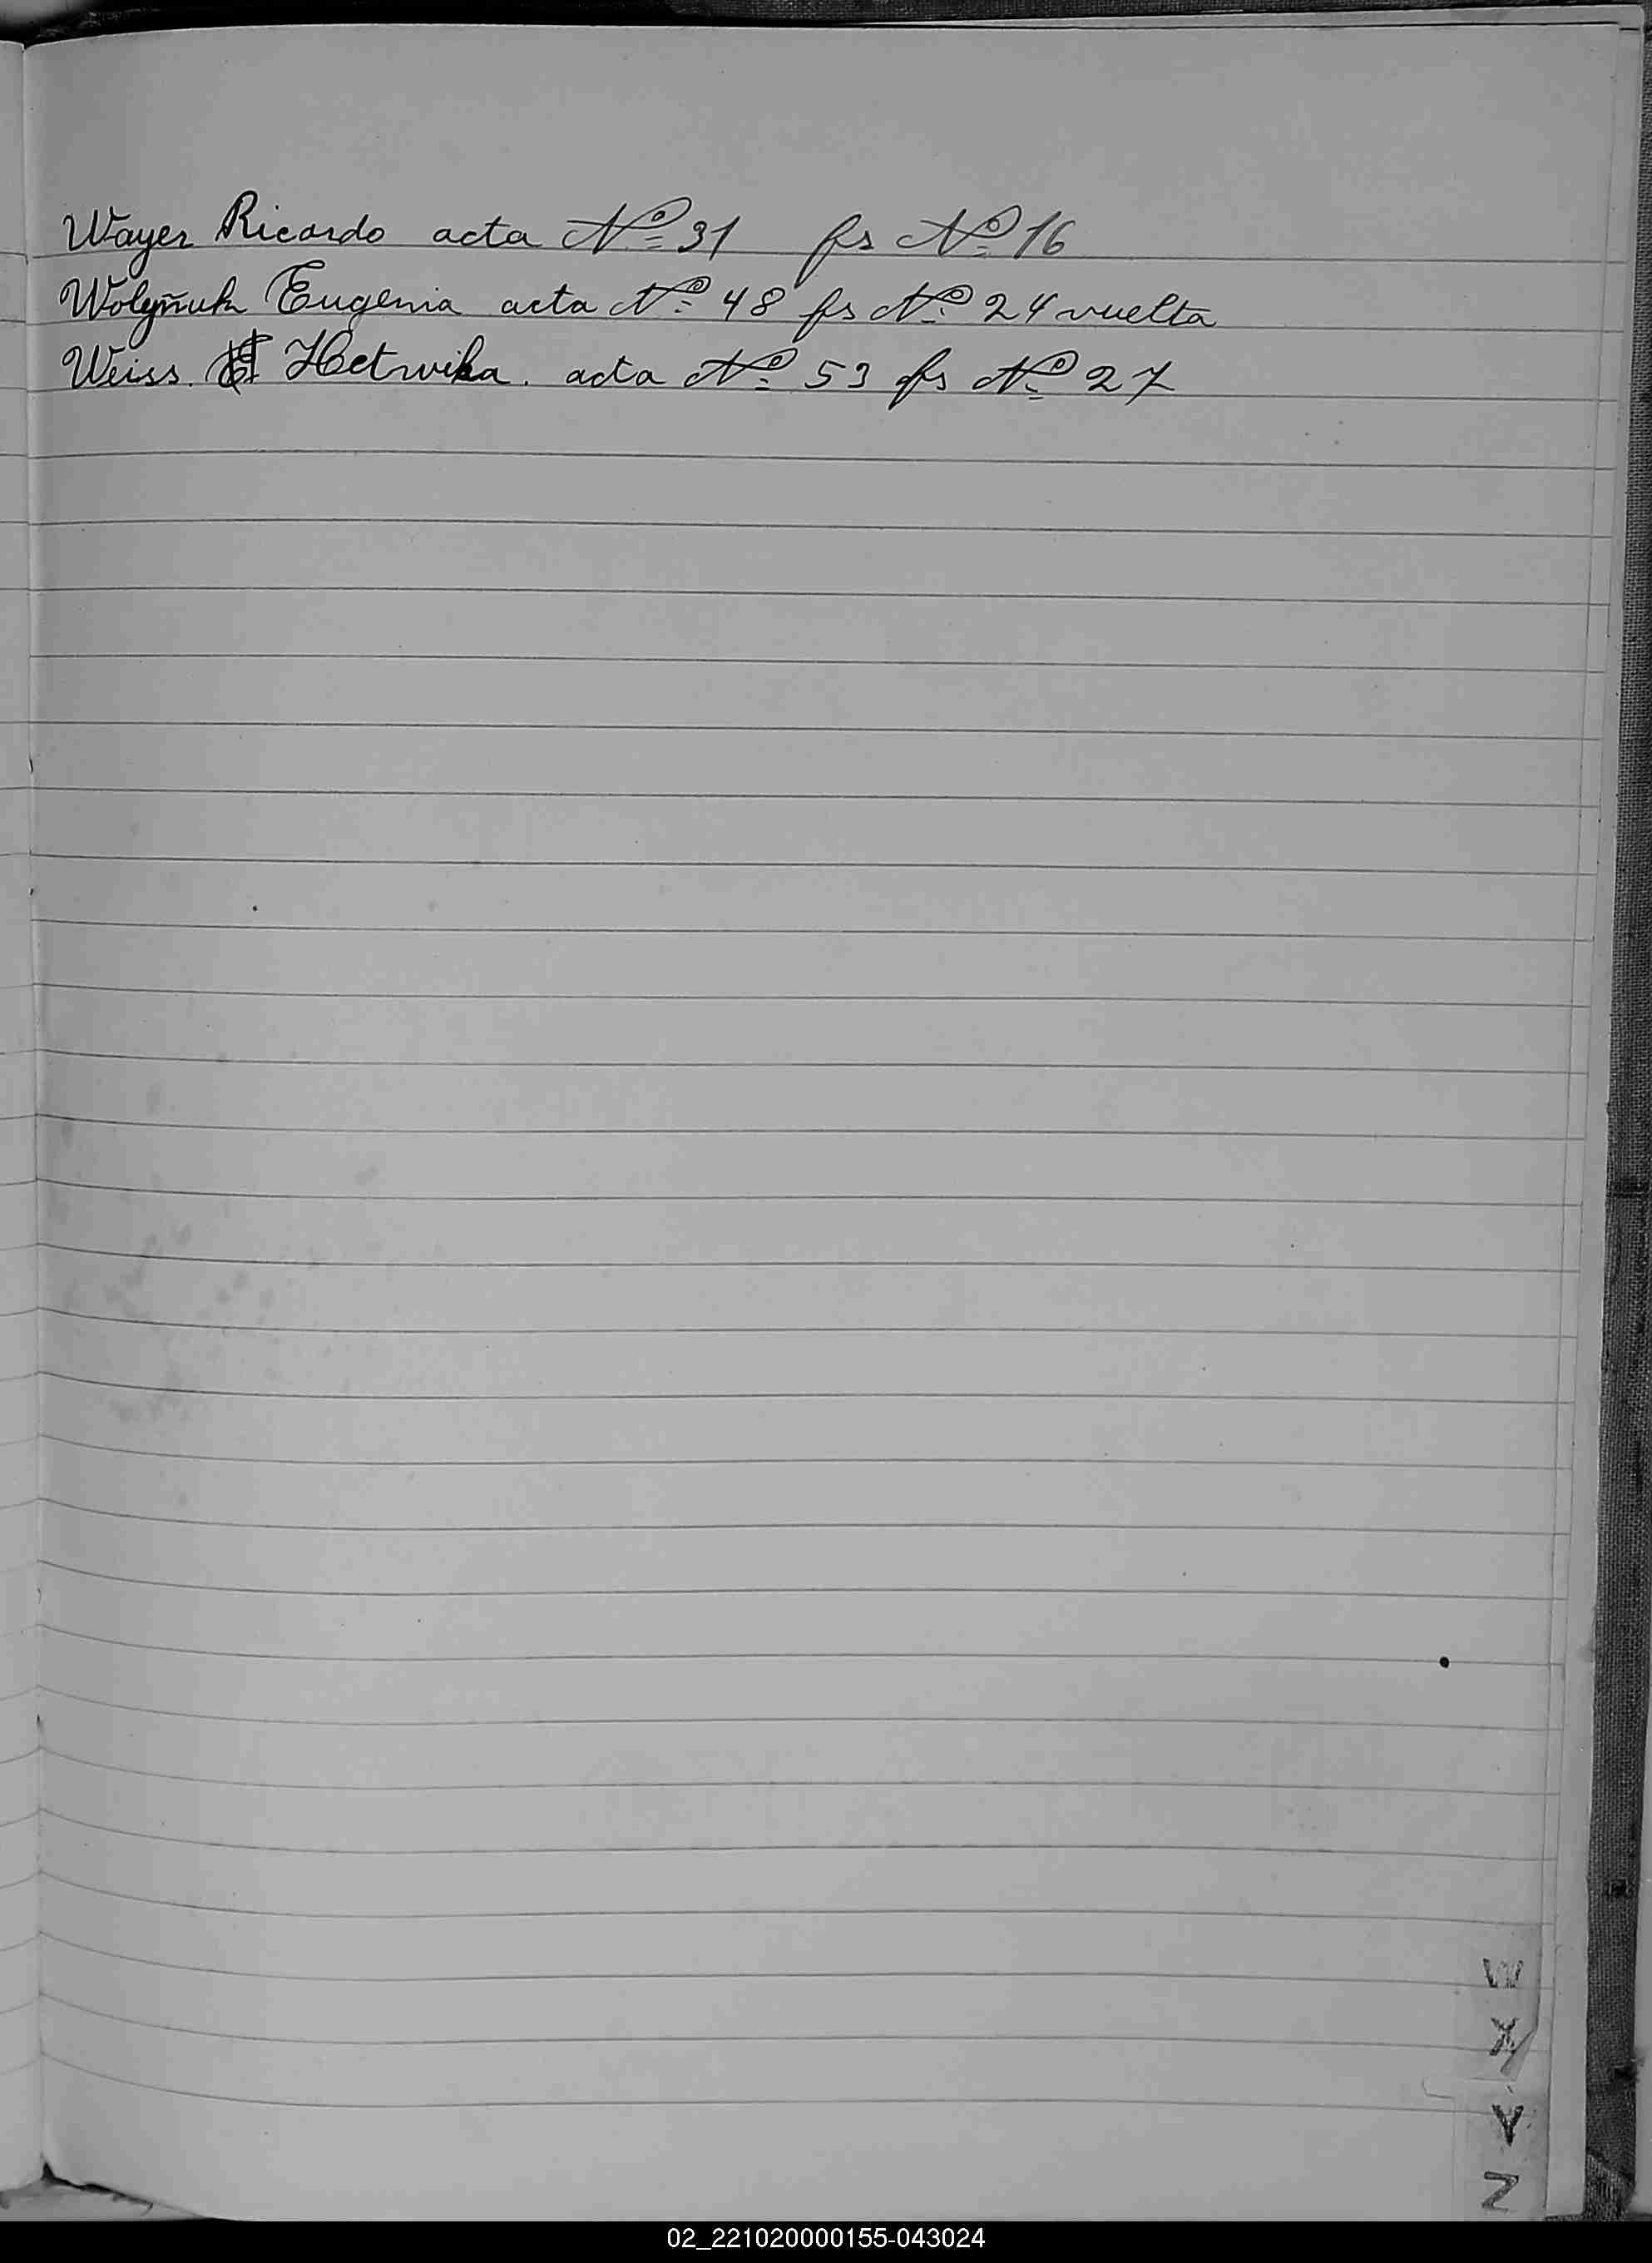 Wayer Ricardo acta Nº 31 fs Nº 16
Wolyñuk Eugenia acta Nº 48 fs Nº 24 vuelta
Weiss. Hetwika. acta Nº 53 fs Nº 27
W
X
Y
Z
02_221020000155-043024